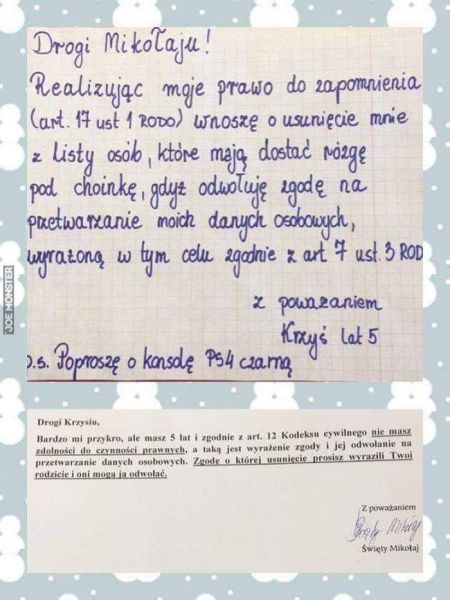 Drogi Mikołaju!
Realizując moje prawo do zapomnienia
(art. 17 ust 1 RODO) wnoszę o usunięcie mnie
z listy osób, które mają dostać rózgę
pod choinkę, gdyż odwołuję zgodę na
przetwarzanie moich danych osobowych,
wyrażoną w tym celu zgodnie z art 7 ust. 3 ROD
z poważaniem
Krzyś lat 5
p.s. Poproszę o konsolę PS4 czarną
JOE MONSTER
Drogi Krzysiu,
Bardzo mi przykro, ale masz 5 lat i zgodnie z art. 12 Kodeksu cywilnego nie masz
zdolności do czynności prawnych, a taką jest wyrażenie zgody i jej odwołanie na
przetwarzanie danych osobowych. Zgodę o której usunięcie prosisz wyrazili Twoi
rodzicie i oni mogą ją odwołać.
Z poważaniem
Święty Mikołaj
Święty Mikołaj